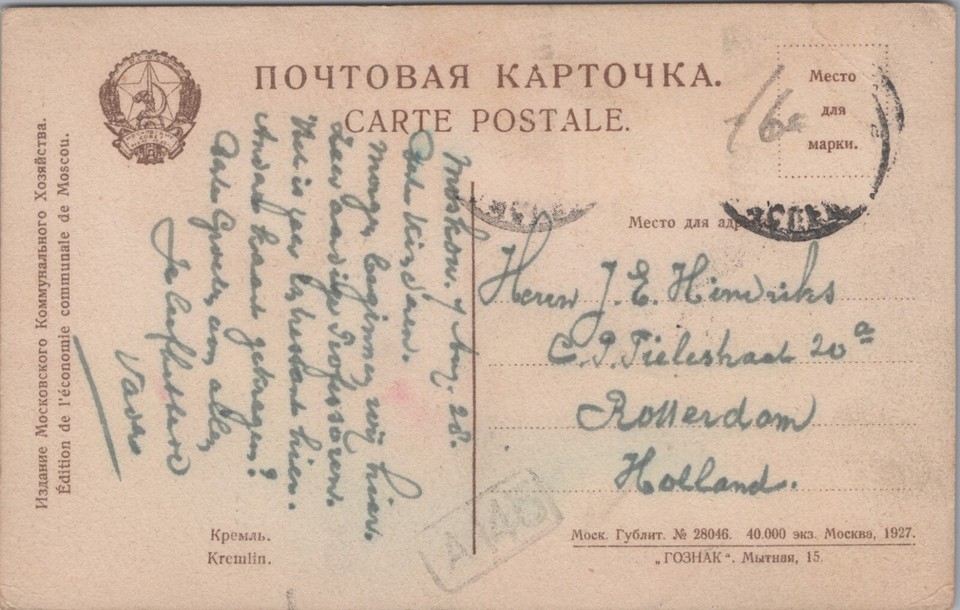 ПОЧТОВАЯ КАРТОЧКА.
CARTE POSTALE.
Место
для
марки.
16
Издание Московского Коммунального Хозяйства.
Édition de l'économie communale de Moscou.
Moskou. 7 Aug. 28.
Beste Kinderen.
Morgen beginnen wij hier.
Zeer aardige Professoren.
Het is zeer hier.
Andere kaart gekregen?
Beste Groeten aan allen
Je liefhebbende
Vader
Место для адр
Herrn J. E. Hendriks
C. P. Tielestraat 20a
Rotterdam
Holland.
Кремль.
Kremlin.
Моск. Гублит. № 28046. 40.000 экз. Москва, 1927.
„ГОЗНАК“. Мытная, 15.